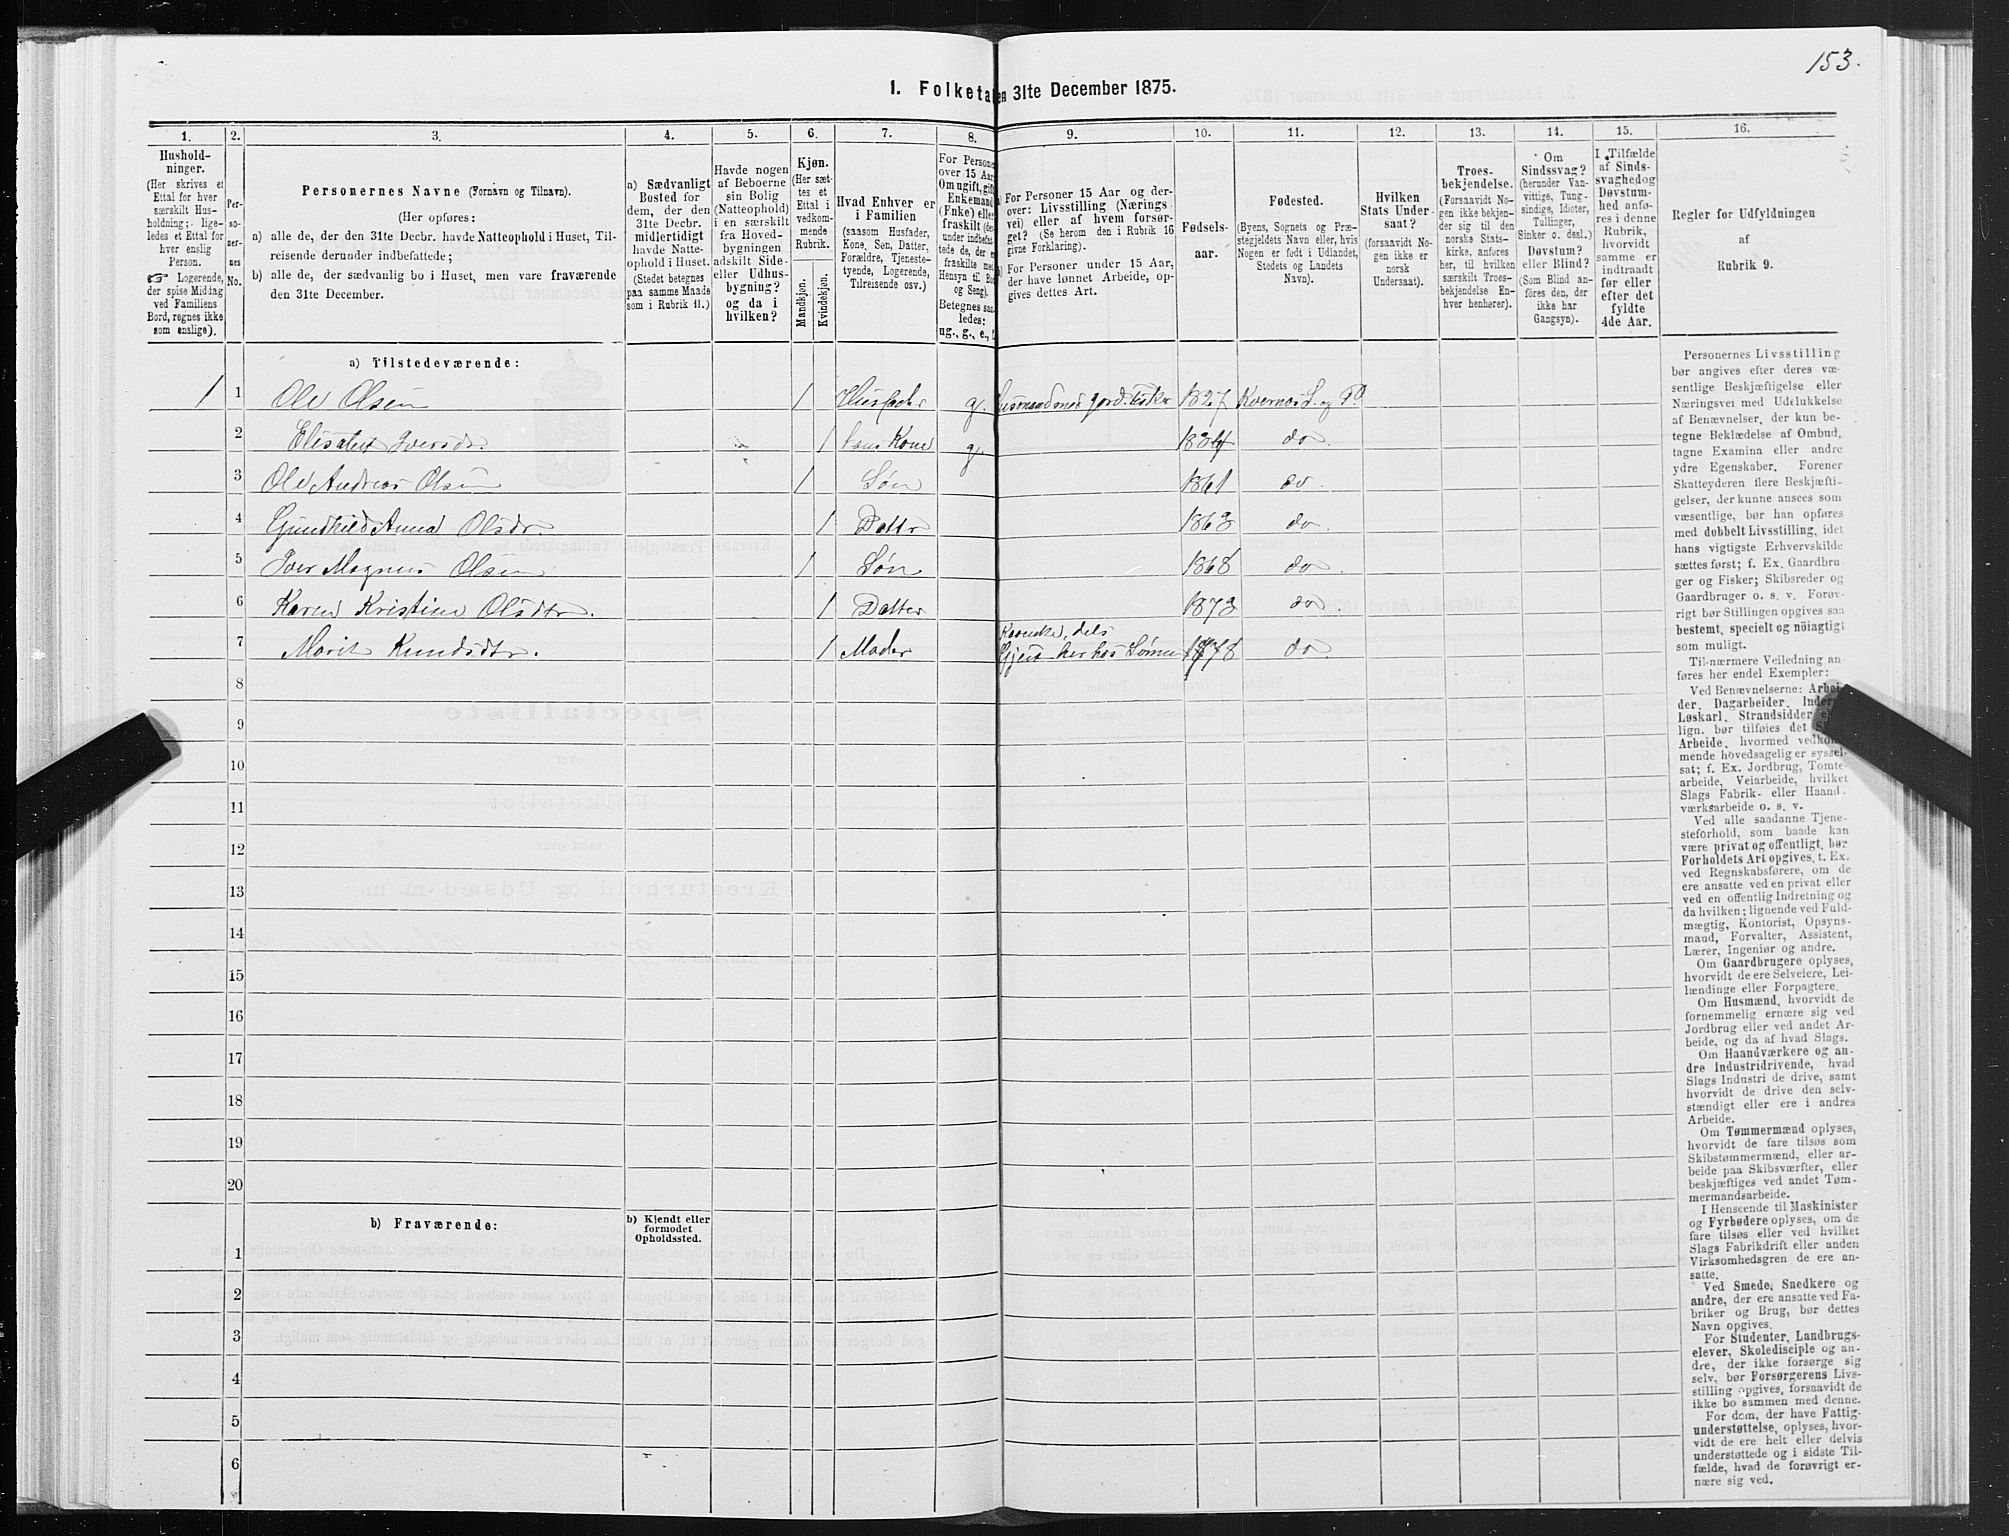 153.
1. Folketa en 31te December 1875.
1. 2. 3. 4. 5. 6. 7. 8. 9. 10. 11. 12. 13. 14. 15. 16.
Hushold-
ninger.
(Her skrives et
Ettal for hver
særskilt Hus-
holdning; lige-
ledes et Ettal for
hver enslig
Person.
☞ Logerende,
der spise Middag
ved Familiens
Bord, regnes ikke
som enslige).
Per-
so-
ner-
nes
No.
Personernes Navne (Fornavn og Tilnavn).
(Her opføres:
a) alle de, der den 31te Decbr. havde Natteophold i Huset, Til-
reisende derunder indbefattede;
b) alle de, der sædvanlig bo i Huset, men vare fraværende
den 31te December.
a) Sædvanligt
Bosted for
dem, der den
31te Decbr.
midlertidigt
havde Natte-
ophold i Huset.
(Stedet betegnes
paa samme Maade
som i Rubrik 11.)
Havde nogen
af Beboerne
sin Bolig
(Natteophold)
i en særskilt
fra Hoved-
bygningen
adskilt Side-
eller Udhus-
bygning?
og da i
hvilken?
Kjøn.
(Her sæt-
tes et
Ettal i
vedkom-
mende
Rubrik.
Mandkjøn.
Kvindekjøn.
Hvad Enhver er
i Familien
(saasom Husfader,
Kone, Søn, Datter,
Forældre, Tjeneste-
tyende, Logerende,
Tilreisende osv.)
For Persone
over 15 Aar
Om ugift, gift
Enkemand
(Enke) elle
fraskilt (de
under indbefat
tede de, der e
fraskilte med
Hensyn til Bor
og Seng).
Betegnes saa-
ledes:
ug., g., e., f.
For Personer 15 Aar og der-
over: Livsstilling (Nærings-
vei) eller af hvem forsør-
get? (Se herom den i Rubrik 16
givne Forklaring).
For Personer under 15 Aar,
der have lønnet Arbeide, op-
gives dettes Art.
Fødsels-
aar.
Fødested.
(Byens, Sognets og Præ-
stegjeldets Navn eller, hvis
Nogen er født i Udlandet,
Stedets og Landets
Navn).
Hvilken
Stats Under-
saat?
(forsaavidt No-
gen ikke er
norsk
Undersaat).
Troes-
bekjendelse.
(Forsaavidt No-
gen ikke bekjen-
der sig til den
norske Stats-
kirke, anføres
her, til hvilken
særskilt Troes-
bekjendelse En-
hver henhører).
Om
Sindssvag?
(herunder Van-
vittige, Tung-
sindige, Idioter,
Tullinger,
Sinker o. desl.)
Døvstum?
eller Blind?
(Som Blind an-
føres den, der
ikke har
Gangsyn).
I Tilfælde
af Sinds-
svaghed og
Døvstum-
hed anfø-
res i denne
Rubrik,
hvorvidt
samme er
indtraadt
før eller
efter det
fyldte
4de Aar.
Regler for Udfyldningen
af
Rubrik 9.
a) Tilstedeværende:
1 1 Ole Olsen 1 Husfader g. 1827 Kvernes S. og P.
2 Elisabet Iversdr. 1 hans Kone g. 1834 do.
3 Ole Andreas Olsen 1 Søn 1861 do.
4 Gundhild Anna Olsdr. 1 Datter 1863 do.
5 Iver Magnus Olsen 1 Søn 1868 do.
6 Karen Kristine Olsdtr. 1 Datter 1873 do.
7 Marit Knudsdtr. 1 Moder do.
8
9
10
11
12
13
14
15
16
17
18
19
20
b) Fraværende:
b) Kjendt eller
formodet
Opholdssted.
1
2
3
4
5
6
Personernes Livsstilling
bør angives efter deres væ-
sentlige Beskjæftigelse eller
Næringsvei med Udelukkelse
af Benævnelser, der kun be-
tegne Beklædelse af Ombud,
tagne Examina eller andre
ydre Egenskaber. Forener
Skatteyderen flere Beskjæfti-
gelser, der kunne ansees som
væsentlige, bør han opføres
med dobbelt Livsstilling, idet
hans vigtigste Erhvervskilde
sættes først; f. Ex. Gaardbru-
ger og Fisker; Skibsreder og
Gaardbruger o. s. v. Forøv-
rigt bør Stillingen opgives saa
bestemt, specielt og nöiagtigt
som muligt.
Til nærmere Veiledning an-
føres her endel Exempler:
Ved Benævnelserne: Arbei-
der, Dagarbeider, Inder
Løskarl, Strandsidder
lign. bør tilføies det
Arbeide, hvormed vedkom-
mende hovedsagelig er syssel-
sat; f. Ex. Jordbrug, Tomte-
arbeide, Veiarbeide, hvilket
Slags Fabrik- eller Haand-
værksarbeide o. s. v.
Ved alle saadanne Tjene-
steforhold, som baade kan
være privat og offentligt, bør
Forholdets Art opgives, t. Ex.
ved Regnskabsførere, om de
ere ansatte ved en privat eller
ved en offentlig Indretning og
da hvilken; lignende ved Fuld-
mægtig, Kontorist, Opsyns-
mand, Forvalter, Assistent,
Lærer, Ingeniør og andre.
Om Gaardbrugere oplyses,
hvorvidt de ere Selveiere, Lei-
lændinge eller Forpagtere.
Om Husmænd, hvorvidt de
fornemmelig ernære sig ved
Jordbrug eller ved andet Ar-
beide, og da af hvad Slags.
Om Haandværkere og an-
dre Industridrivende, hvad
Slags Industri de drive, samt
hvorvidt de drive den selv-
stændigt eller ere i andres
Arbeide.
Om Tømmermænd oplyses,
hvorvidt de fare tilsøs som
Skibstømmermænd, eller ar-
beide paa Skibsværfter, eller
beskjæftiges ved andet Tøm-
mermandsarbeide.
I Henseende til Maskinister
og Fyrbødere oplyses, om de
fare tilsøs eller ved hvilket
Slags Fabrikdrift eller anden
Virksomhedsgren de ere an-
satte.
Ved Smede, Snedkere og
andre, der ere ansatte ved Fa-
briker og Brug, bør dettes
Navn opgives.
For Studenter, Landbrugs-
elever, Skoledisciple og an-
dre, der ikke forsørge sig
selv, bør Forsørgerens Livs-
stilling opgives, forsaavidt de
ikke bo sammen med denne.
For dem, der have Fattig-
understøttelse, oplyses, hvor-
vidt de ere helt eller delvis
understøttede og i sidste Til-
fælde, hvad de forøvrigt er-
nære sig ved.